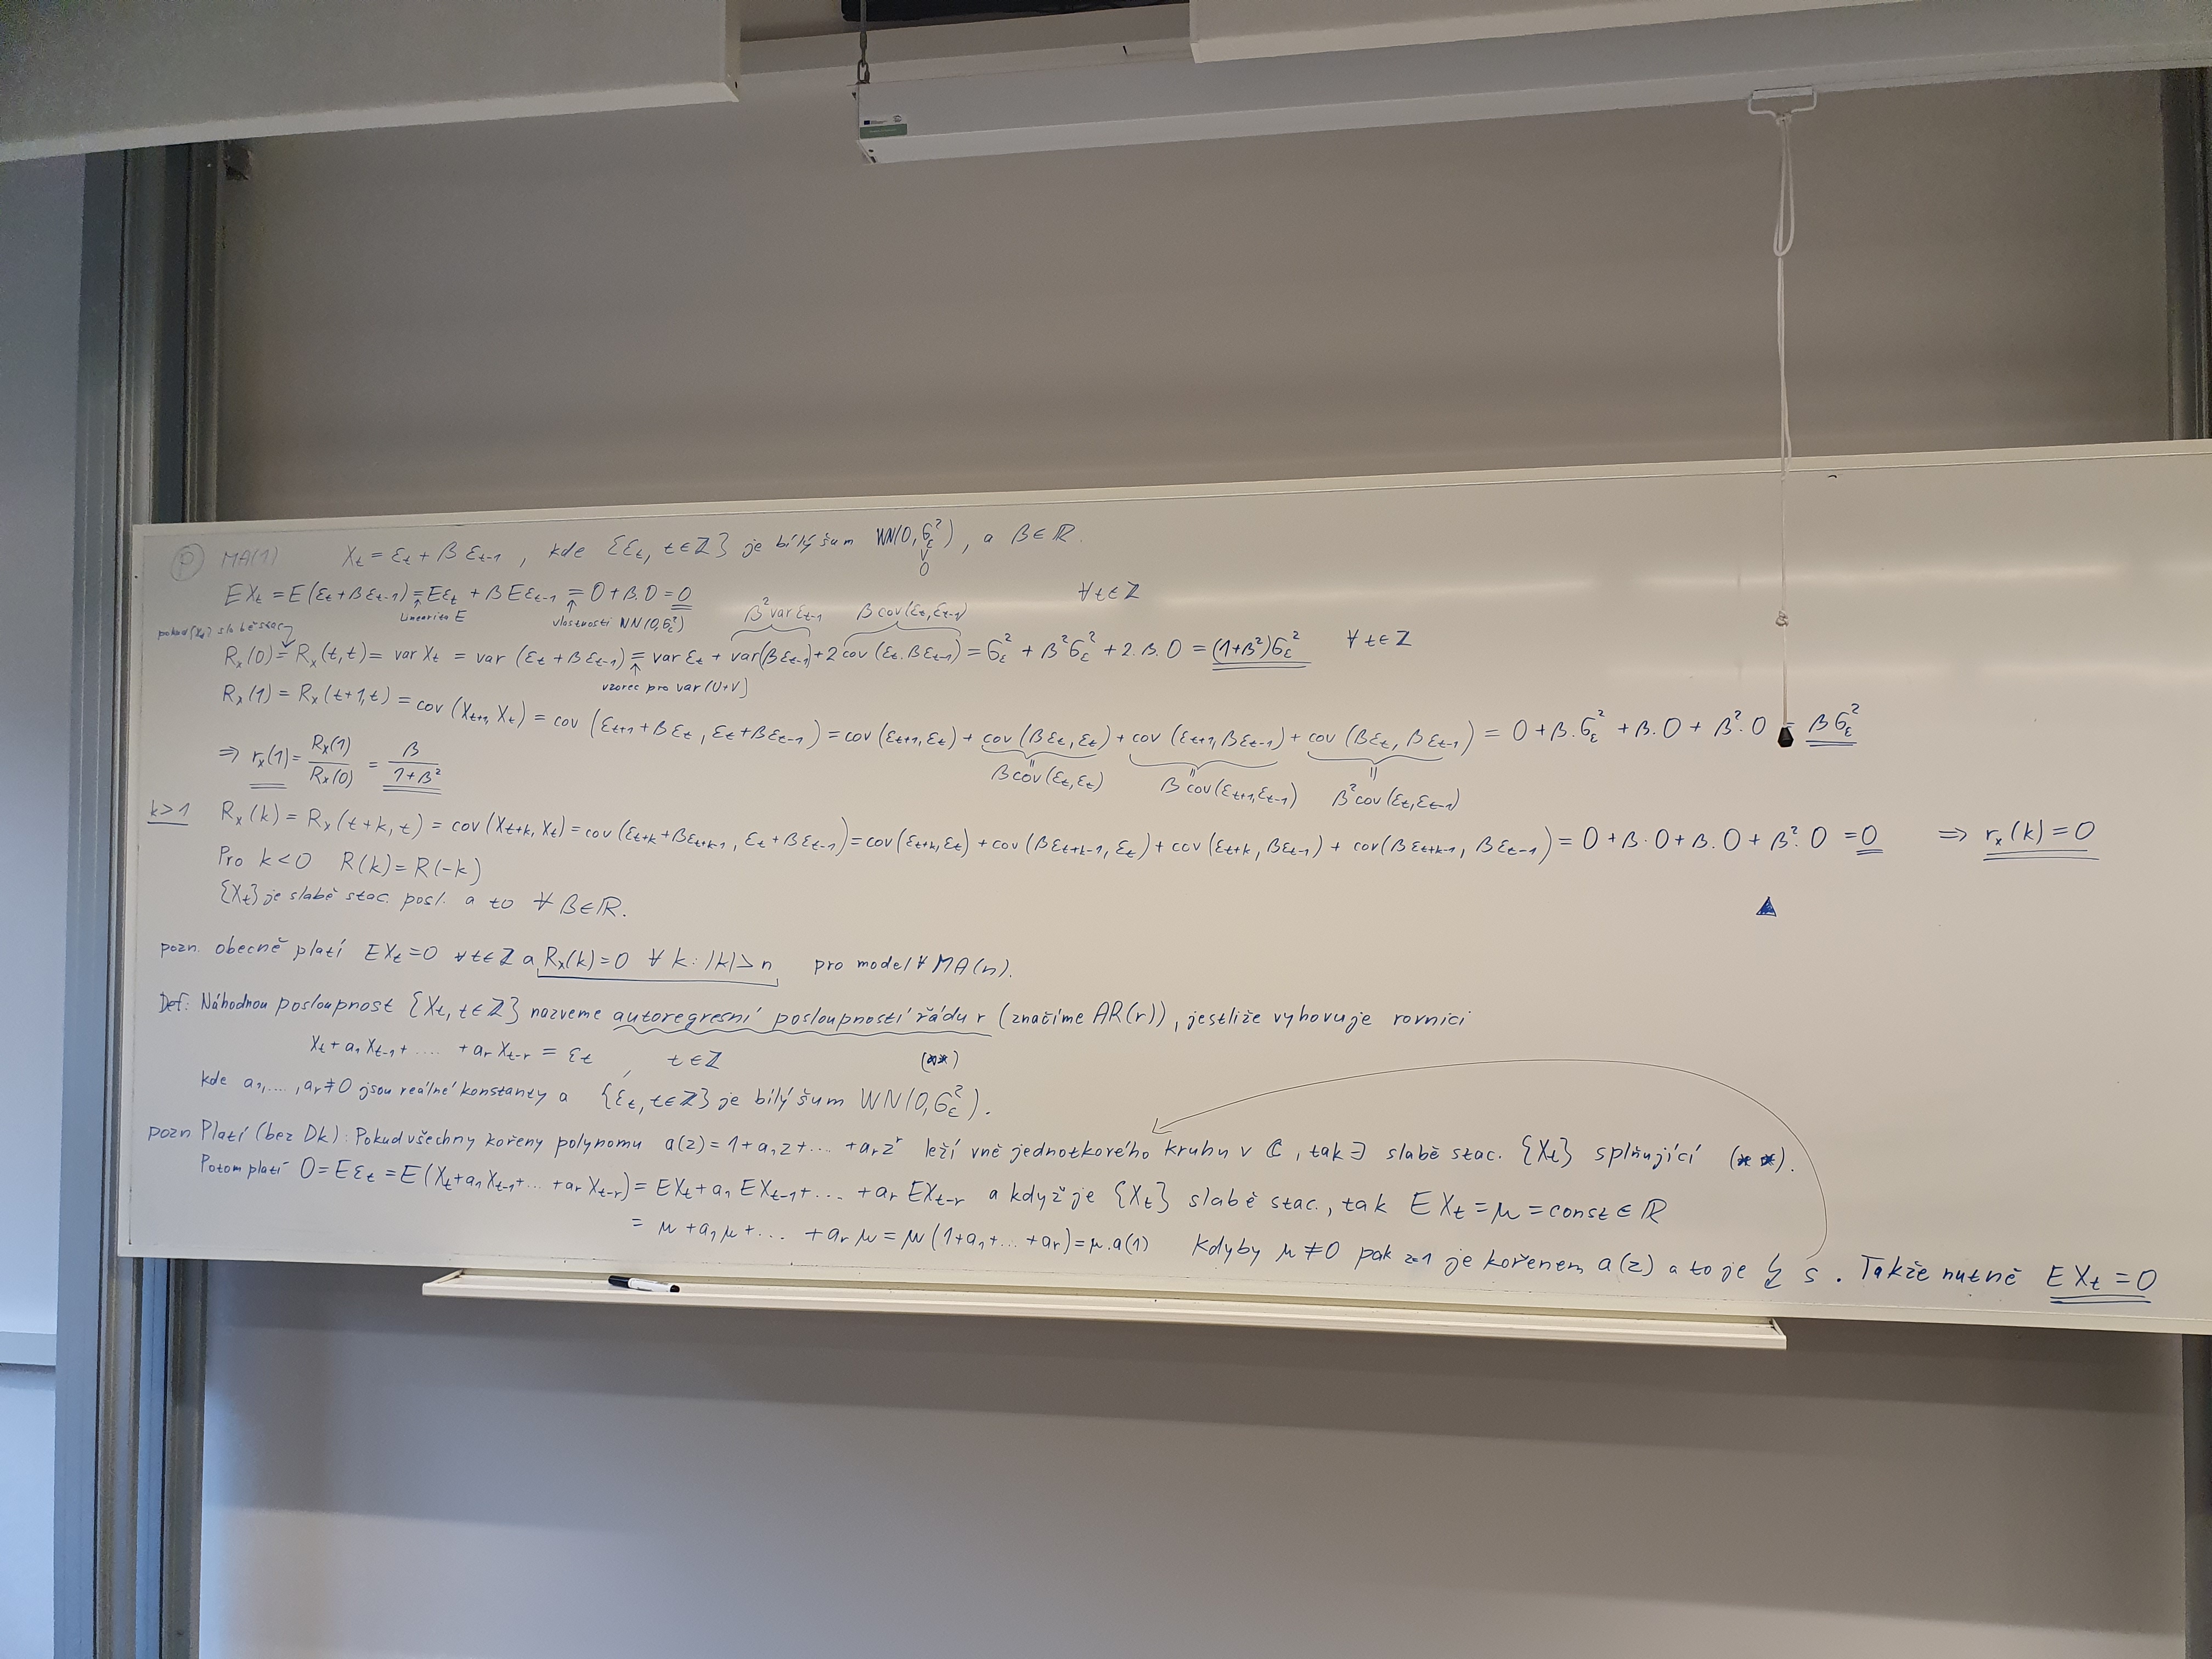 Ⓟ MA(1) X_t = ε_t + β ε_{t-1}, kde {ε_t, t∈ℤ} je bílý šum WN(0, σ_ε²), a β∈ℝ.
∨
0
EX_t = E(ε_t + β ε_{t-1}) = Eε_t + β Eε_{t-1} = 0 + β.0 = 0 ∀t∈ℤ
↑ linearita E ↑ vlastnosti WN(0,σ_ε²) β² var ε_{t-1} β cov(ε_t, ε_{t-1})
pokud {X_t} slabě stac.
R_x(0) = R_x(t,t) = var X_t = var (ε_t + β ε_{t-1}) = var ε_t + var(β ε_{t-1}) + 2 cov (ε_t, β ε_{t-1}) = σ_ε² + β² σ_ε² + 2.β.0 = (1+β²)σ_ε² ∀ t∈ℤ
↑ vzorec pro var (U+V)
R_x(1) = R_x(t+1,t) = cov (X_{t+1}, X_t) = cov (ε_{t+1} + β ε_t, ε_t + β ε_{t-1}) = cov (ε_{t+1}, ε_t) + cov (β ε_t, ε_t) + cov (ε_{t+1}, β ε_{t-1}) + cov (β ε_t, β ε_{t-1}) = 0 + β.σ_ε² + β.0 + β².0 = β σ_ε²
= β cov(ε_t, ε_t) = β cov(ε_{t+1}, ε_{t-1}) = β² cov(ε_t, ε_{t-1})
⇒ r_x(1) = R_x(1)/R_x(0) = β/(1+β²)
k>1 R_x(k) = R_x(t+k, t) = cov (X_{t+k}, X_t) = cov (ε_{t+k} + β ε_{t+k-1}, ε_t + β ε_{t-1}) = cov (ε_{t+k}, ε_t) + cov (β ε_{t+k-1}, ε_t) + cov (ε_{t+k}, β ε_{t-1}) + cov(β ε_{t+k-1}, β ε_{t-1}) = 0 + β.0 + β.0 + β².0 = 0 ⇒ r_x(k) = 0
Pro k<0 R(k) = R(-k)
{X_t} je slabě stac. posl. a to ∀ β∈ℝ. ▲
pozn. obecně platí EX_t = 0 ∀t∈ℤ a R_x(k) = 0 ∀ k: |k|>n pro model ∀ MA(n).
Def: Náhodnou posloupnost {X_t, t∈ℤ} nazveme autoregresní posloupností řádu r (značíme AR(r)), jestliže vyhovuje rovnici
X_t + a_1 X_{t-1} + .... + a_r X_{t-r} = ε_t, t∈ℤ (**)
kde a_1, ...., a_r ≠ 0 jsou reálné konstanty a {ε_t, t∈ℤ} je bílý šum WN(0, σ_ε²).
pozn Platí (bez Dk): Pokud všechny kořeny polynomu a(z) = 1 + a_1 z + ... + a_r z^r leží vně jednotkového kruhu v ℂ, tak ∃ slabě stac. {X_t} splňující (**).
Potom platí 0 = Eε_t = E(X_t + a_1 X_{t-1} + ... + a_r X_{t-r}) = EX_t + a_1 EX_{t-1} + ... + a_r EX_{t-r} a když je {X_t} slabě stac., tak EX_t = μ = const ∈ ℝ
= μ + a_1 μ + ... + a_r μ = μ (1 + a_1 + ... + a_r) = μ.a(1) Kdyby μ ≠ 0 pak z=1 je kořenem a(z) a to je ↯ s. Takže nutně EX_t = 0